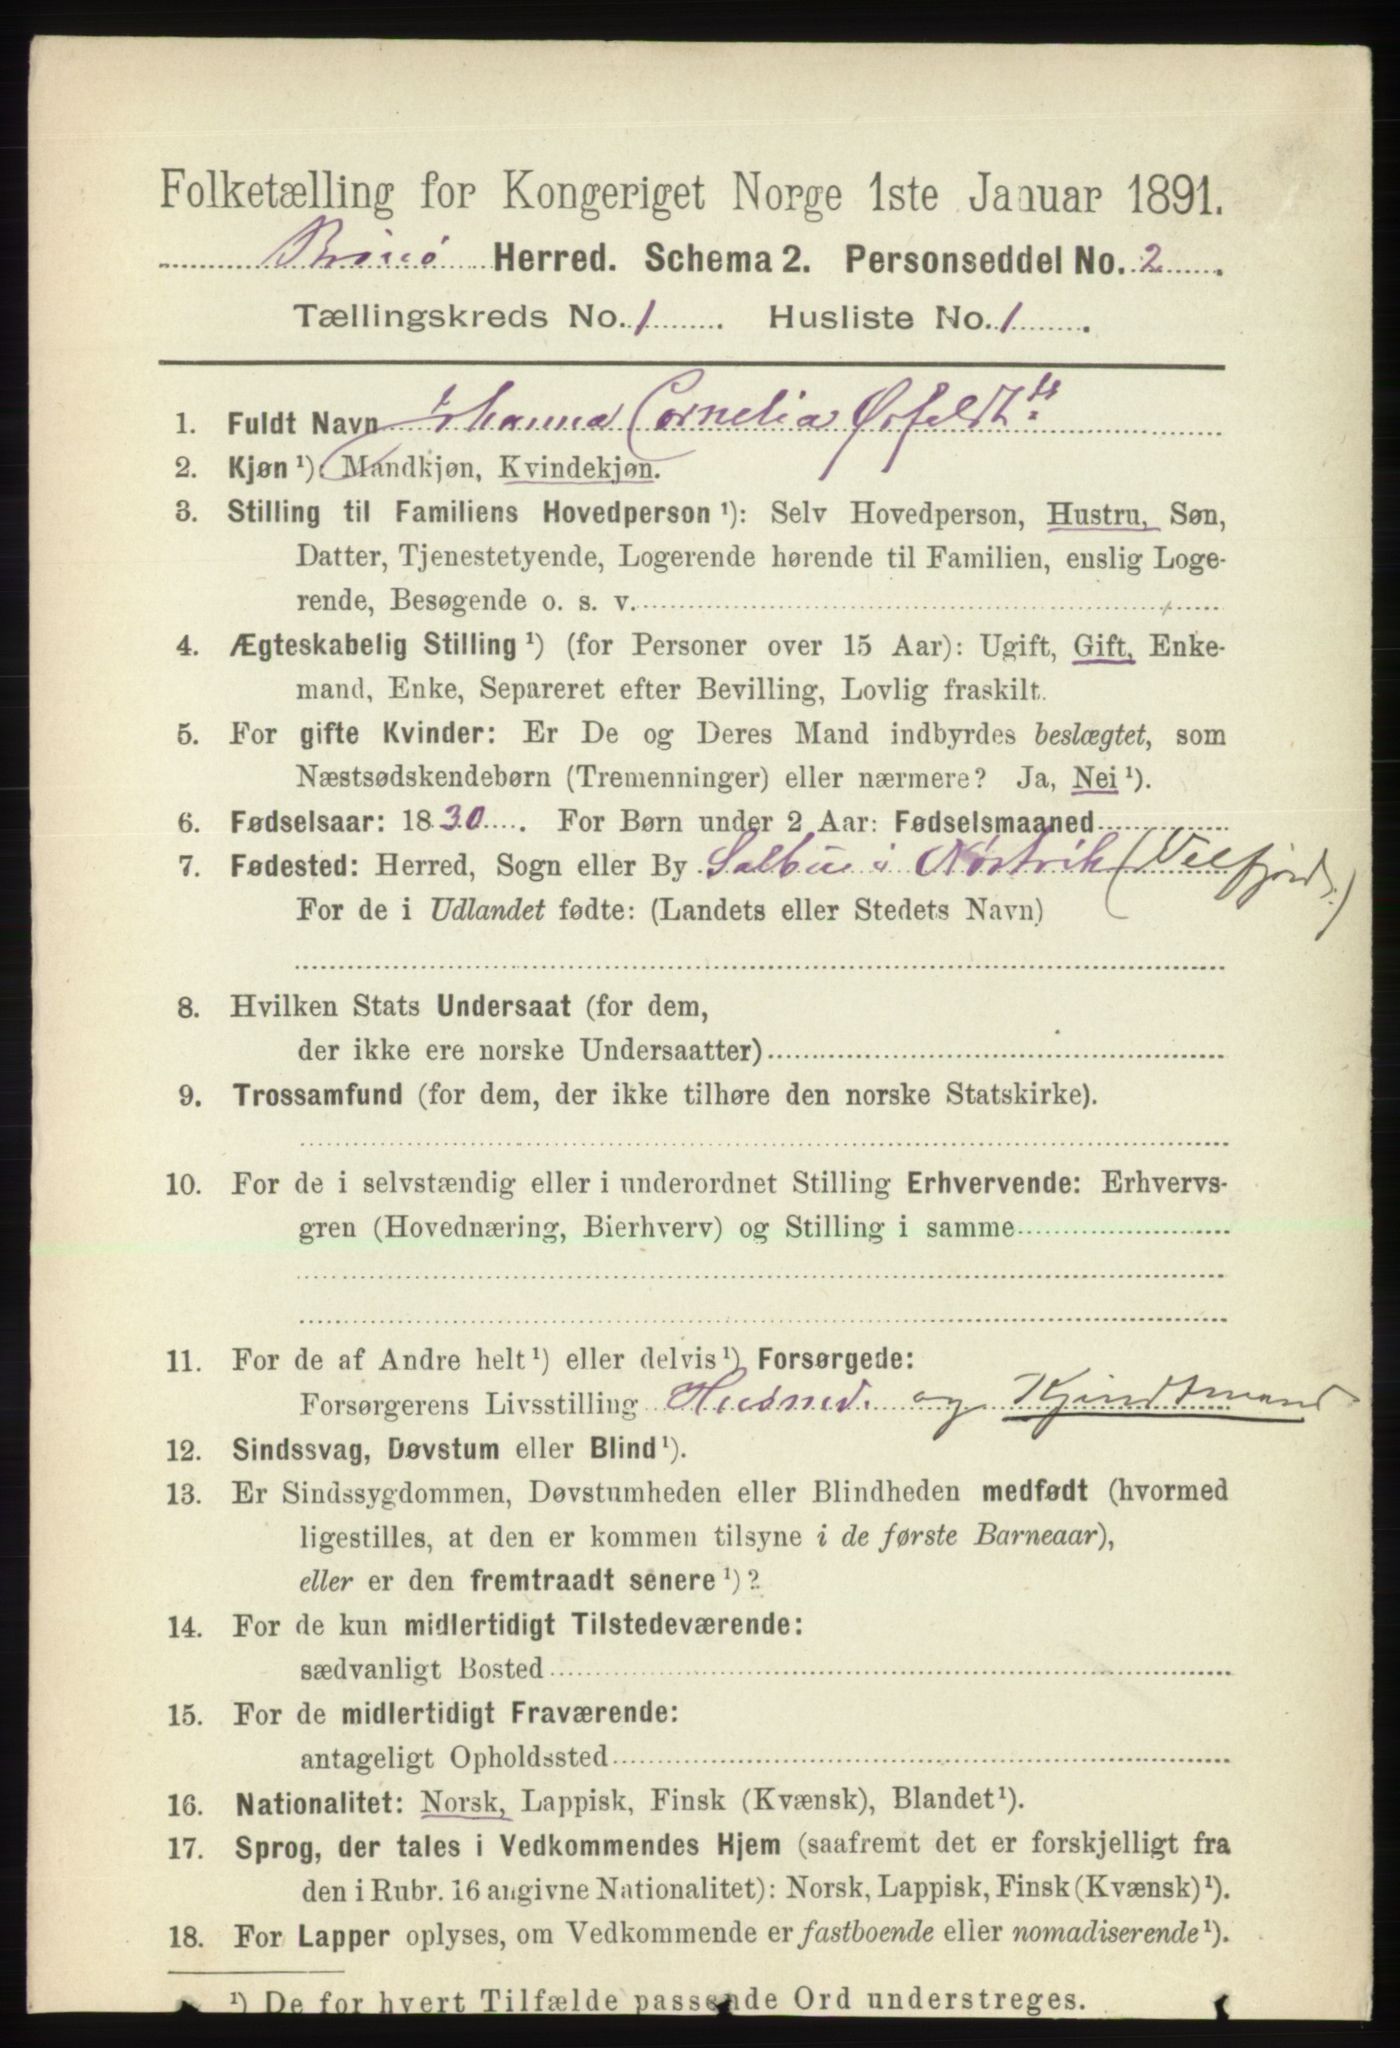 Folketælling for Kongeriget Norge 1ste Januar 1891.
Brønø Herred. Schema 2. Personseddel No. 2.
Tællingskreds No. 1. Husliste No. 1.
1. Fuldt Navn Johanna Cornelia Ørfeldt
2. Kjøn ¹): Mandkjøn, Kvindekjøn.
3. Stilling til Familiens Hovedperson ¹): Selv Hovedperson, Hustru, Søn,
Datter, Tjenestetyende, Logerende hørende til Familien, enslig Loge-
rende, Besøgende o. s. v.
4. Ægteskabelig Stilling ¹) (for Personer over 15 Aar): Ugift, Gift, Enke-
mand, Enke, Separeret efter Bevilling, Lovlig fraskilt.
5. For gifte Kvinder: Er De og Deres Mand indbyrdes beslægtet, som
Næstsødskendebørn (Tremenninger) eller nærmere? Ja, Nei ¹).
6. Fødselsaar: 1830. For Børn under 2 Aar: Fødselsmaaned
7. Fødested: Herred, Sogn eller By Salbu i Nøstvik (Velfjord.)
For de i Udlandet fødte: (Landets eller Stedets Navn)
8. Hvilken Stats Undersaat (for dem,
der ikke ere norske Undersaatter)
9. Trossamfund (for dem, der ikke tilhøre den norske Statskirke).
10. For de i selvstændig eller i underordnet Stilling Erhvervende: Erhvervs-
gren (Hovednæring, Bierhverv) og Stilling i samme
11. For de af Andre helt ¹) eller delvis ¹) Forsørgede:
Forsørgerens Livsstilling Husmd. og
12. Sindssvag, Døvstum eller Blind ¹).
13. Er Sindssygdommen, Døvstumheden eller Blindheden medfødt (hvormed
ligestilles, at den er kommen tilsyne i de første Barneaar),
eller er den fremtraadt senere ¹)?
14. For de kun midlertidigt Tilstedeværende:
sædvanligt Bosted
15. For de midlertidigt Fraværende:
antageligt Opholdssted
16. Nationalitet: Norsk, Lappisk, Finsk (Kvænsk), Blandet ¹).
17. Sprog, der tales i Vedkommendes Hjem (saafremt det er forskjelligt fra
den i Rubr. 16 angivne Nationalitet): Norsk, Lappisk, Finsk (Kvænsk) ¹).
18. For Lapper oplyses, om Vedkommende er fastboende eller nomadiserende ¹).
¹) De for hvert Tilfælde passende Ord understreges.